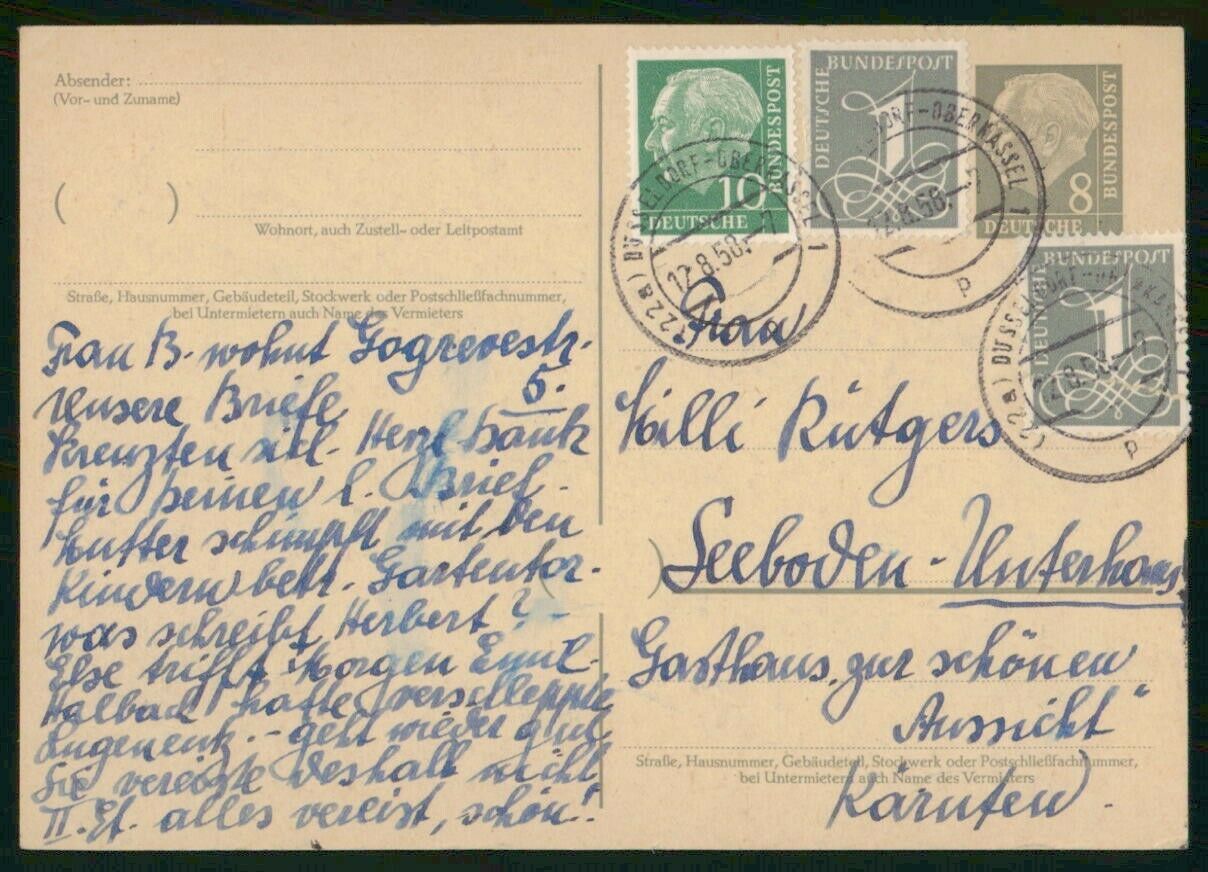 Absender:
(Vor- und Zuname)
(        )
Wohnort, auch Zustell- oder Leitpostamt
Straße, Hausnummer, Gebäudeteil, Stockwerk oder Postschließfachnummer,
bei Untermietern auch Name des Vermieters
Frau B. wohnt Gogrevestr.
5.
Unsere Briefe
kreuzten sich. Herzl Dank
für Deinen l. Brief.
Mutter schimpft mit den
Kindern betr. Gartentor.
was schreibt Herbert?
Else trifft Morgen Emil.
Halbach hatte verschleppte
Lungenentz. - geht wieder gut
Sie vereiste deshalb nicht
II. Et. alles vereist, schön!
DEUTSCHE BUNDESPOST
10
DEUTSCHE BUNDESPOST
1
DEUTSCHE BUNDESPOST
8
DEUTSCHE BUNDESPOST
1
(22a) DÜSSELDORF-OBERKASSEL 1
12.8.58.-7
DORF-OBERKASSEL 1
12.8.58.-7
p
(22a) DÜSSELDORF-OBERKASSEL
12.8.58.-7
p
Frau
Milli Rütgers
Seeboden - Unterhaus
Gasthaus „zur schönen
Aussicht"
Straße, Hausnummer, Gebäudeteil, Stockwerk oder Postschließfachnummer,
bei Untermietern auch Name des Vermieters
Kärnten.